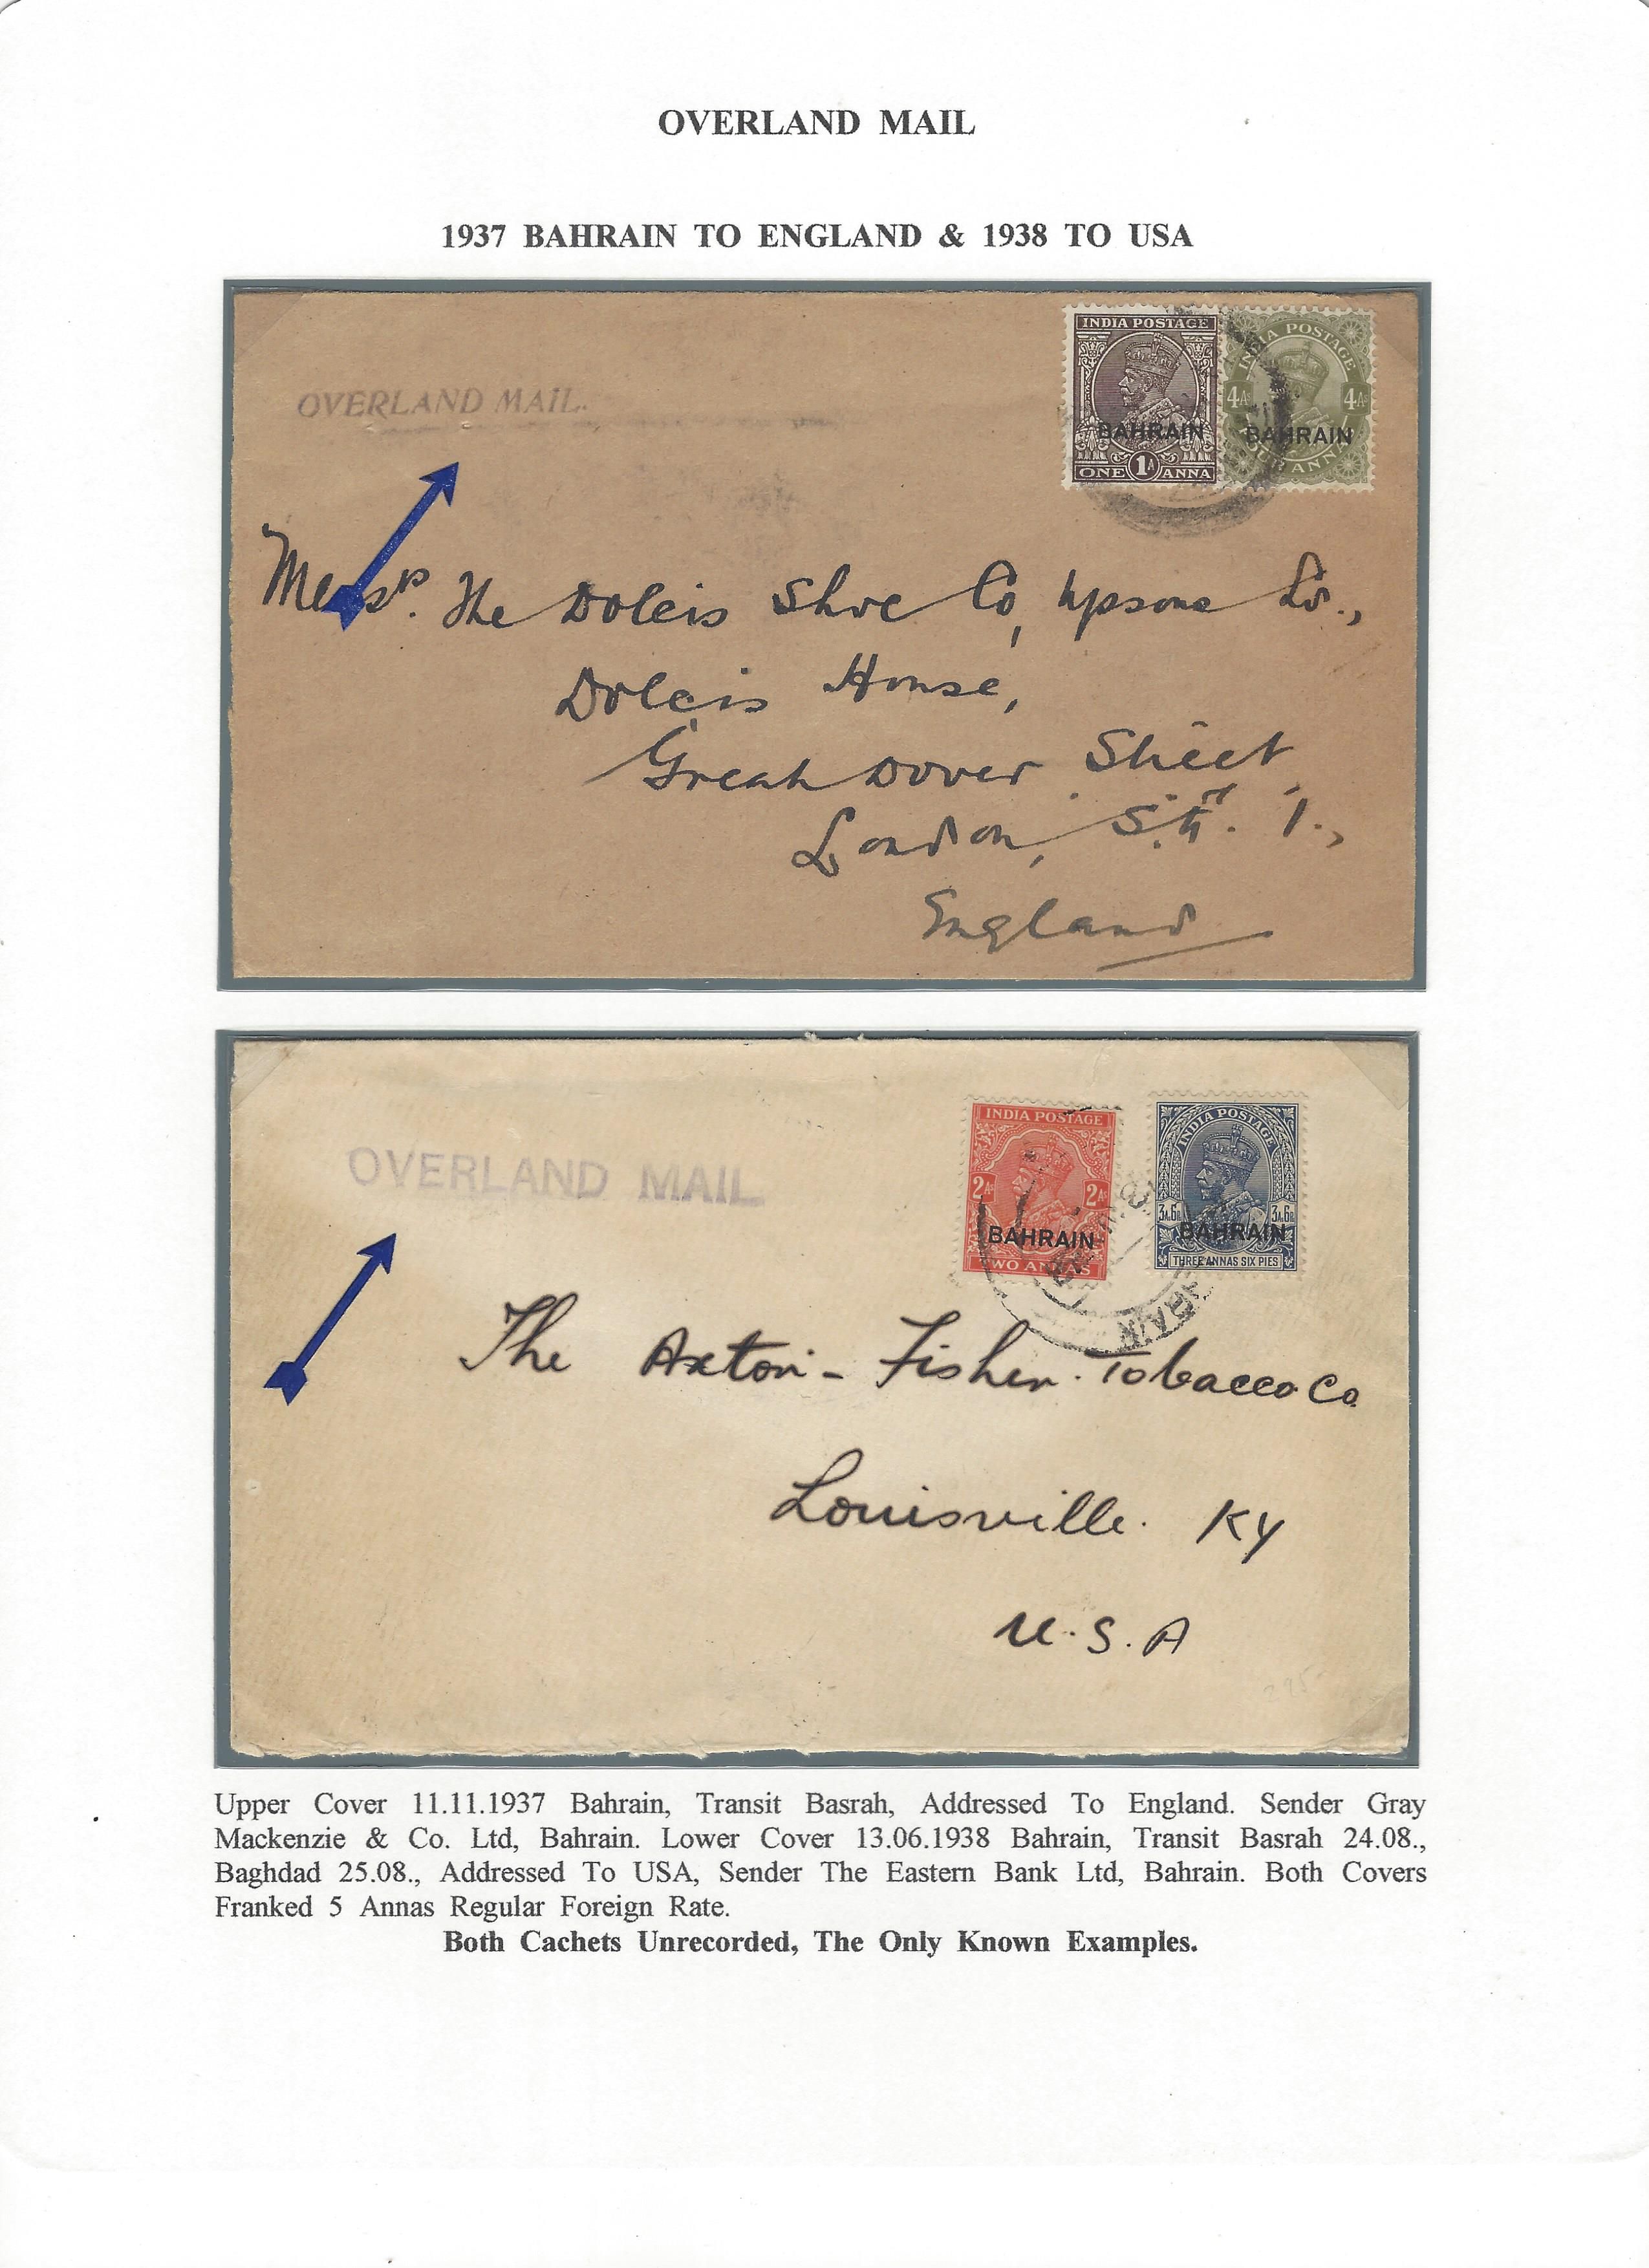 OVERLAND MAIL
1937 BAHRAIN TO ENGLAND & 1938 TO USA
OVERLAND MAIL.
INDIA POSTAGE
BAHRAIN
ONE 1A ANNA
INDIA POSTAGE
4As 4As
BAHRAIN
FOUR ANNAS
Messrs. The Dolcis Shoe Co, Upsons Ld.,
Dolcis House,
Great Dover Street,
London, S.E. 1.,
England
OVERLAND MAIL
INDIA POSTAGE
2As 2As
BAHRAIN
TWO ANNAS
INDIA POSTAGE
3A.6P 3A.6P
BAHRAIN
THREE ANNAS SIX PIES
The Axton-Fisher Tobacco Co
Louisville. KY
U.S.A
Upper Cover 11.11.1937 Bahrain, Transit Basrah, Addressed To England. Sender Gray
Mackenzie & Co. Ltd, Bahrain. Lower Cover 13.06.1938 Bahrain, Transit Basrah 24.08.,
Baghdad 25.08., Addressed To USA, Sender The Eastern Bank Ltd, Bahrain. Both Covers
Franked 5 Annas Regular Foreign Rate.
Both Cachets Unrecorded, The Only Known Examples.